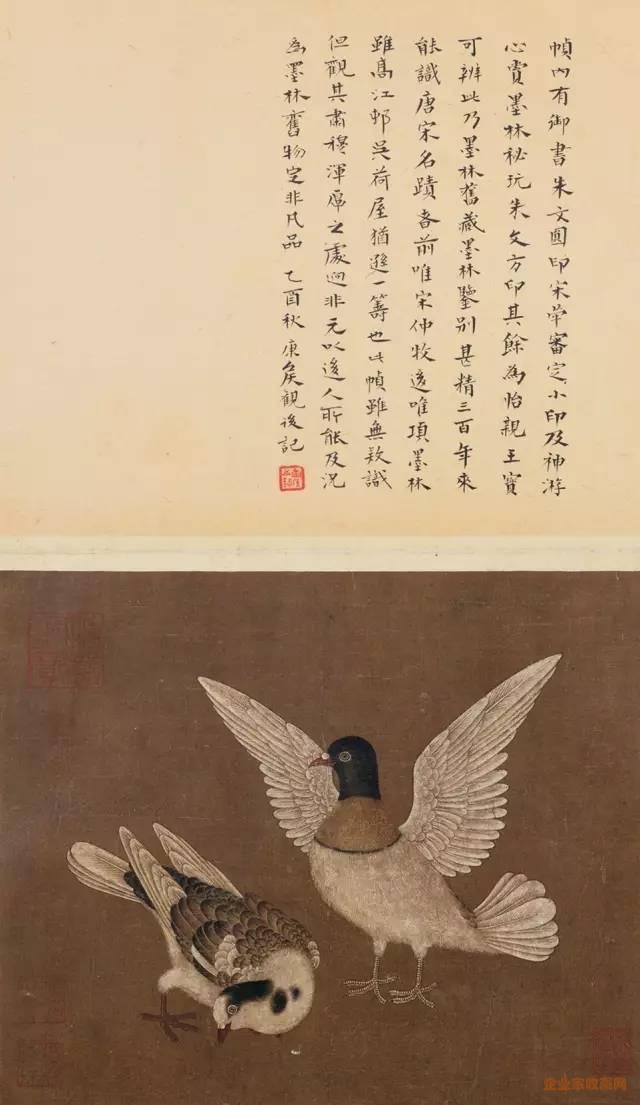 幀內有御書朱文圓印宋犖審定小印及神游
心賞墨林秘玩朱文方印其餘為怡親王寶
可辨此乃墨林舊藏墨林鑒別甚精三百年來
能識唐宋名蹟者前唯宋仲牧後唯項墨林
雖高江邨吳荷屋猶遜一籌也此幀雖無款識
但觀其肅穆渾厚之處迥非元以後人所能及況
為墨林舊物定非凡品 乙酉秋庚矦觀後記
企业家收藏网